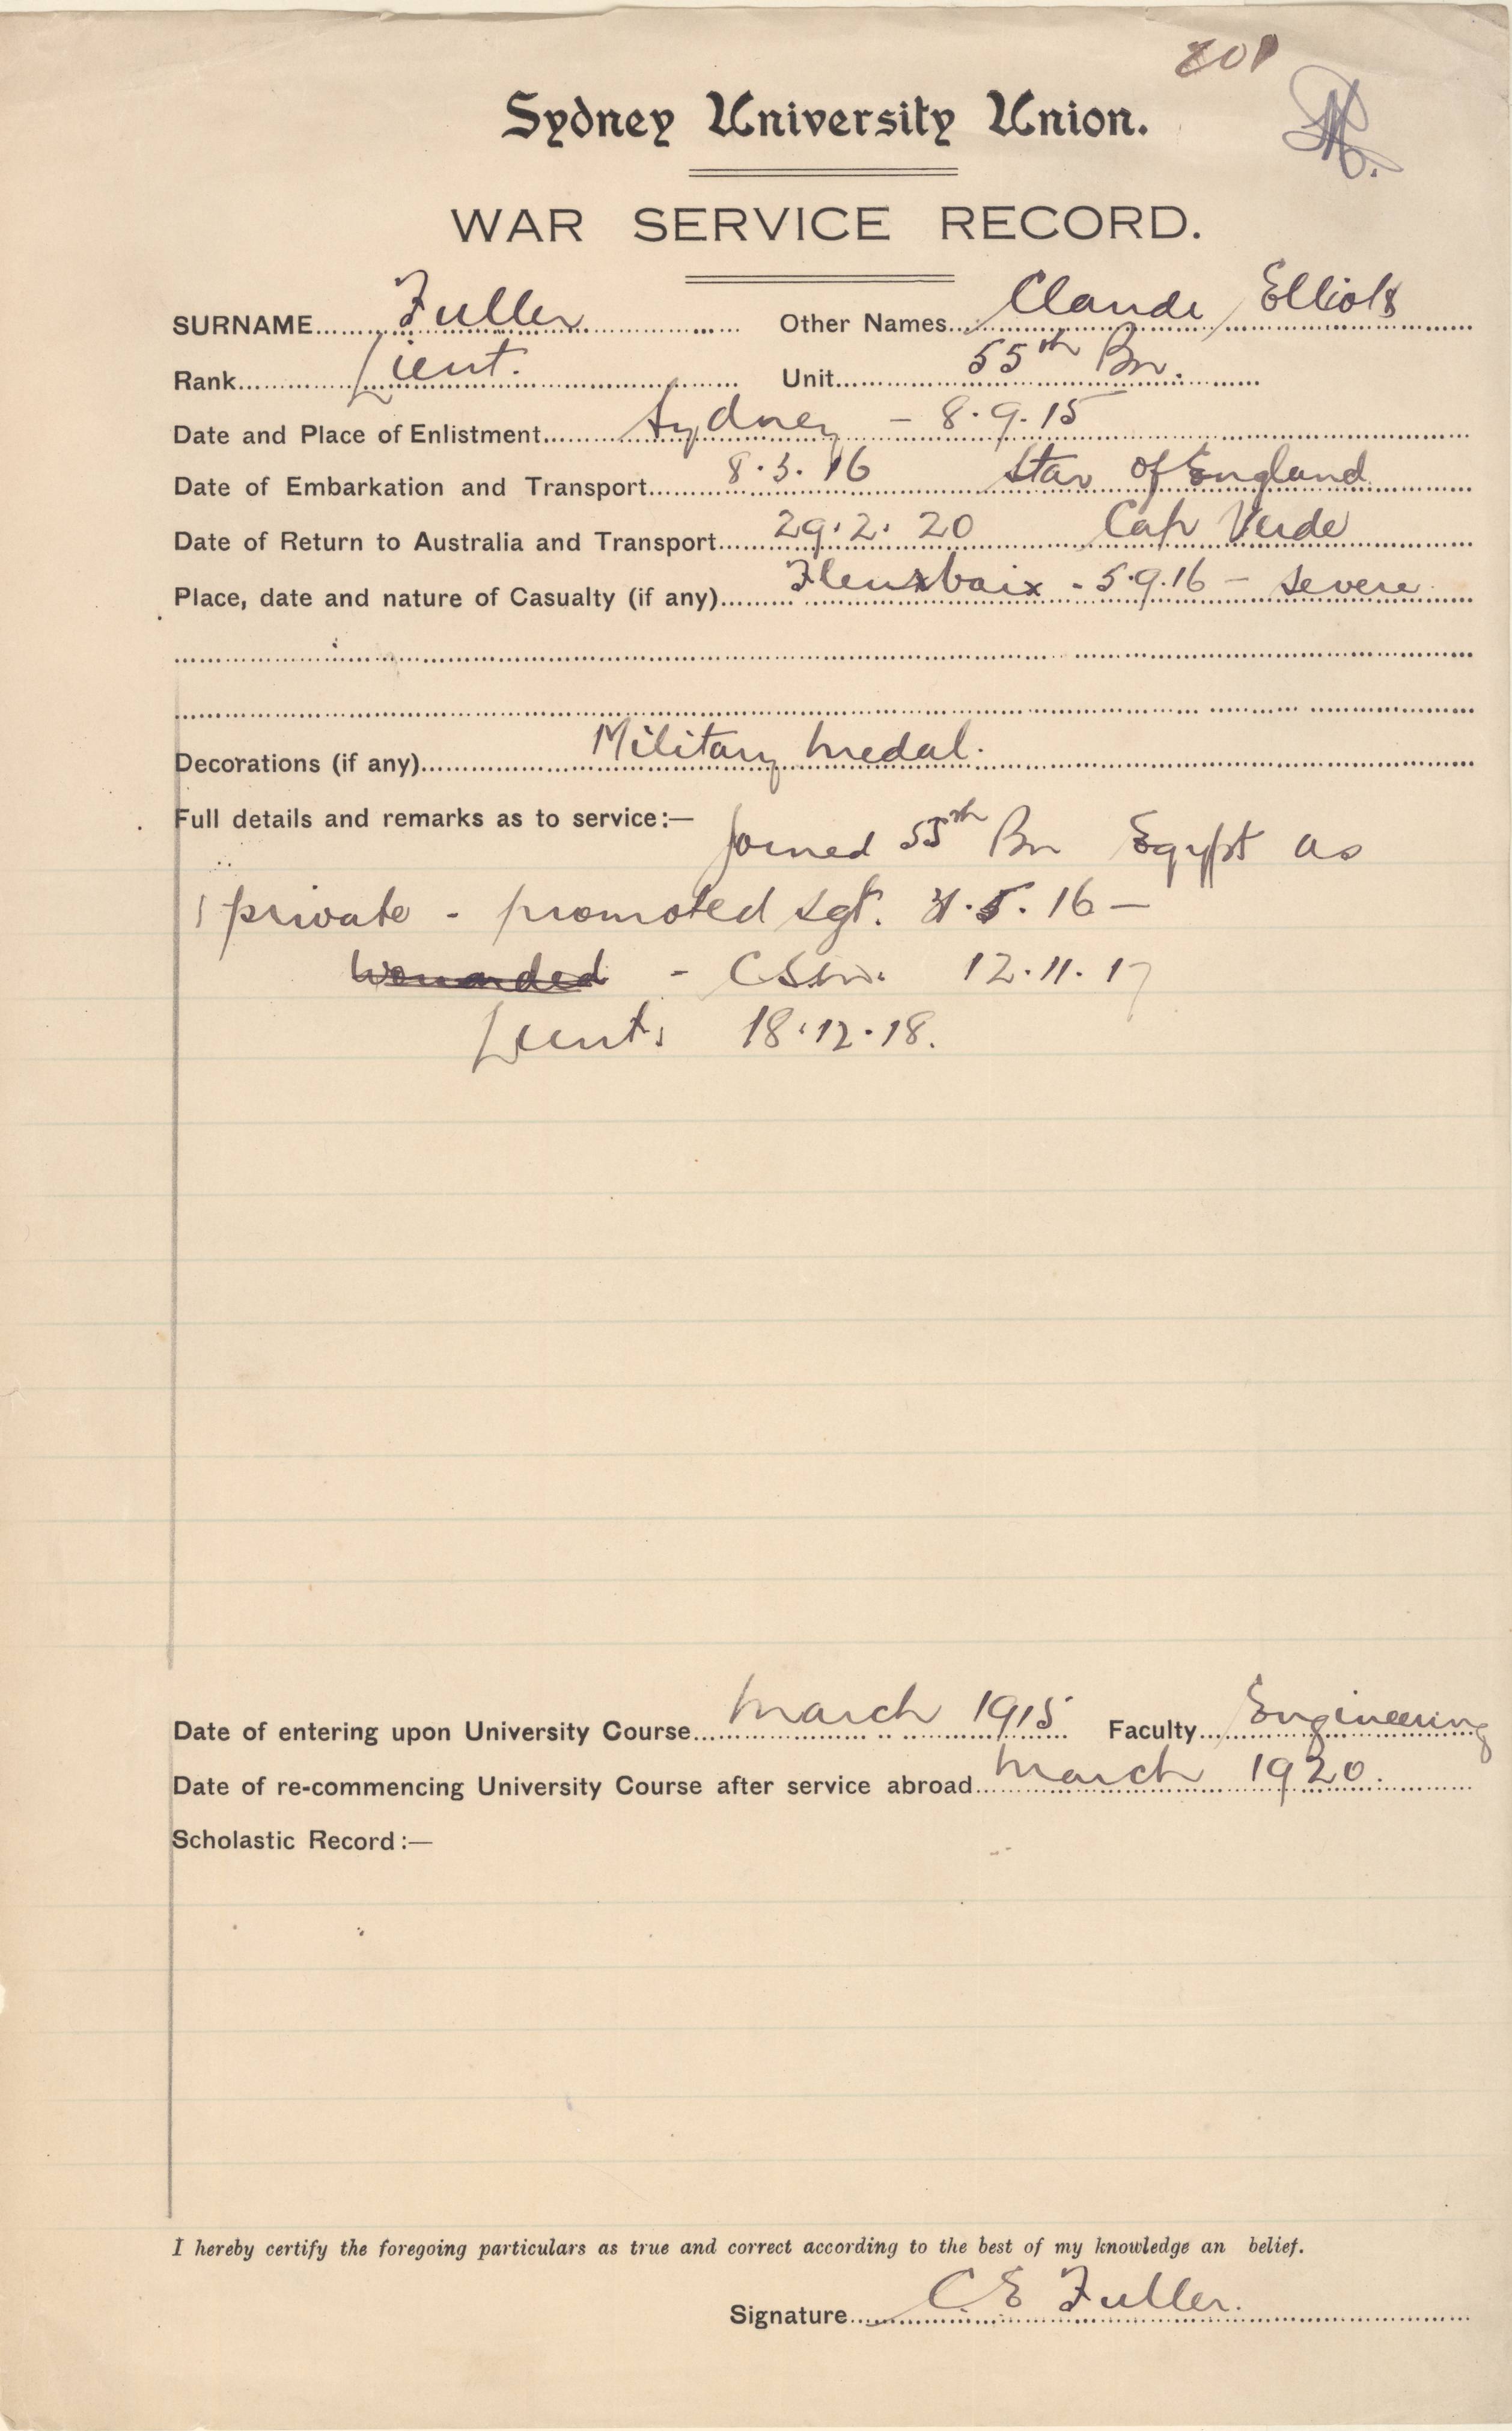 801
Sydney University Union.
WAR SERVICE RECORD.
SURNAME Fuller Other Names Claude Elliott
Rank Lieut. Unit 55th Bn.
Date and Place of Enlistment Sydney - 8.9.15
Date of Embarkation and Transport 8.3.16 Star of England
Date of Return to Australia and Transport 29.2.20 Cap Verde
Place, date and nature of Casualty (if any) Fleurbaix - 5.9.16 - severe
Decorations (if any) Military Medal.
Full details and remarks as to service:— Joined 55th Bn Egypt as
private - promoted Sgt. .5.16 —
wounded - CSM. 12.11.17
Lieut. 18.12.18.
Date of entering upon University Course March 1915 Faculty Engineering
Date of re-commencing University Course after service abroad March 1920.
Scholastic Record:—
I hereby certify the foregoing particulars as true and correct according to the best of my knowledge an belief.
Signature C E Fuller.